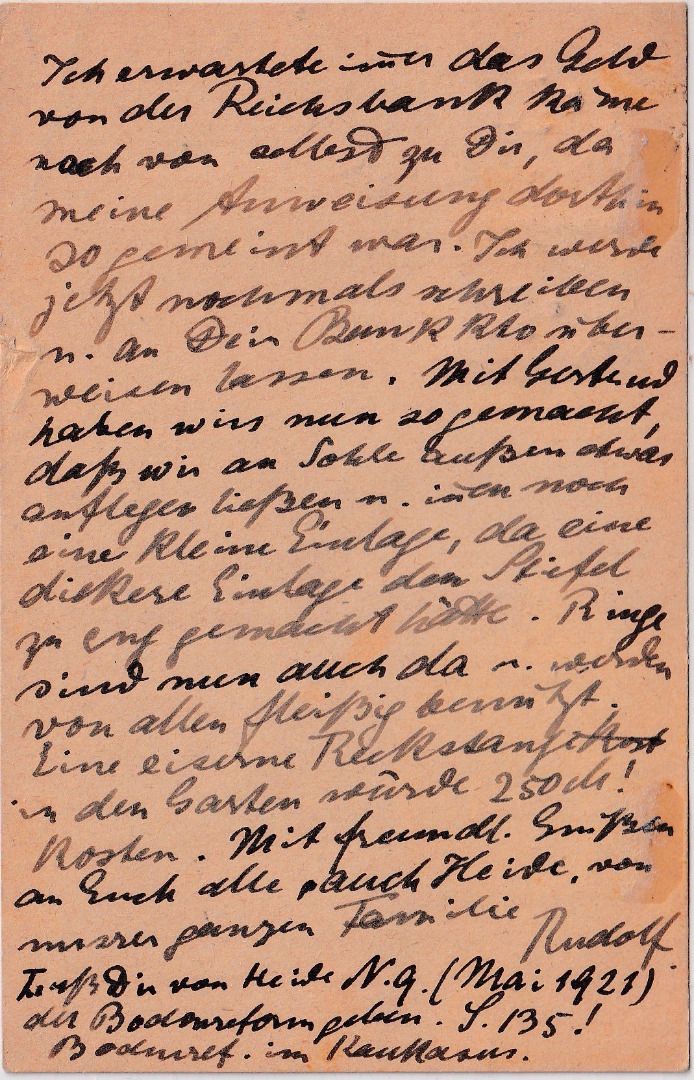 Ich erwartete im̅er das Geld
von der Reichsbank käme
nach von selbst zu Dir, da
meine Anweisung dorthin
so gemeint war. Ich werde
jetzt nochmals schreiben
u. an Dein Bankkto über-
weisen lassen. Mit Gertrud
haben wirs nun so gemacht,
daß wir an Sohle außen etwas
auflegen ließen u. in̅en noch
eine kleine Einlage, da eine
dickere Einlage den Stiefel
zu eng gemacht hätte. Ringe
sind nun auch da u. werden
von allen fleißig benützt.
Eine eiserne Reckstange kost
in den Garten würde 250 M!
kosten. Mit freundl. Grüßen
an Euch alle, auch Heide, von
unsrer ganzen Familie
Rudolf.
Dir von Heide N. 9. (Mai 1921)
der Bodenreform geben. S. 135!
Bodenref. im Kaukasus.